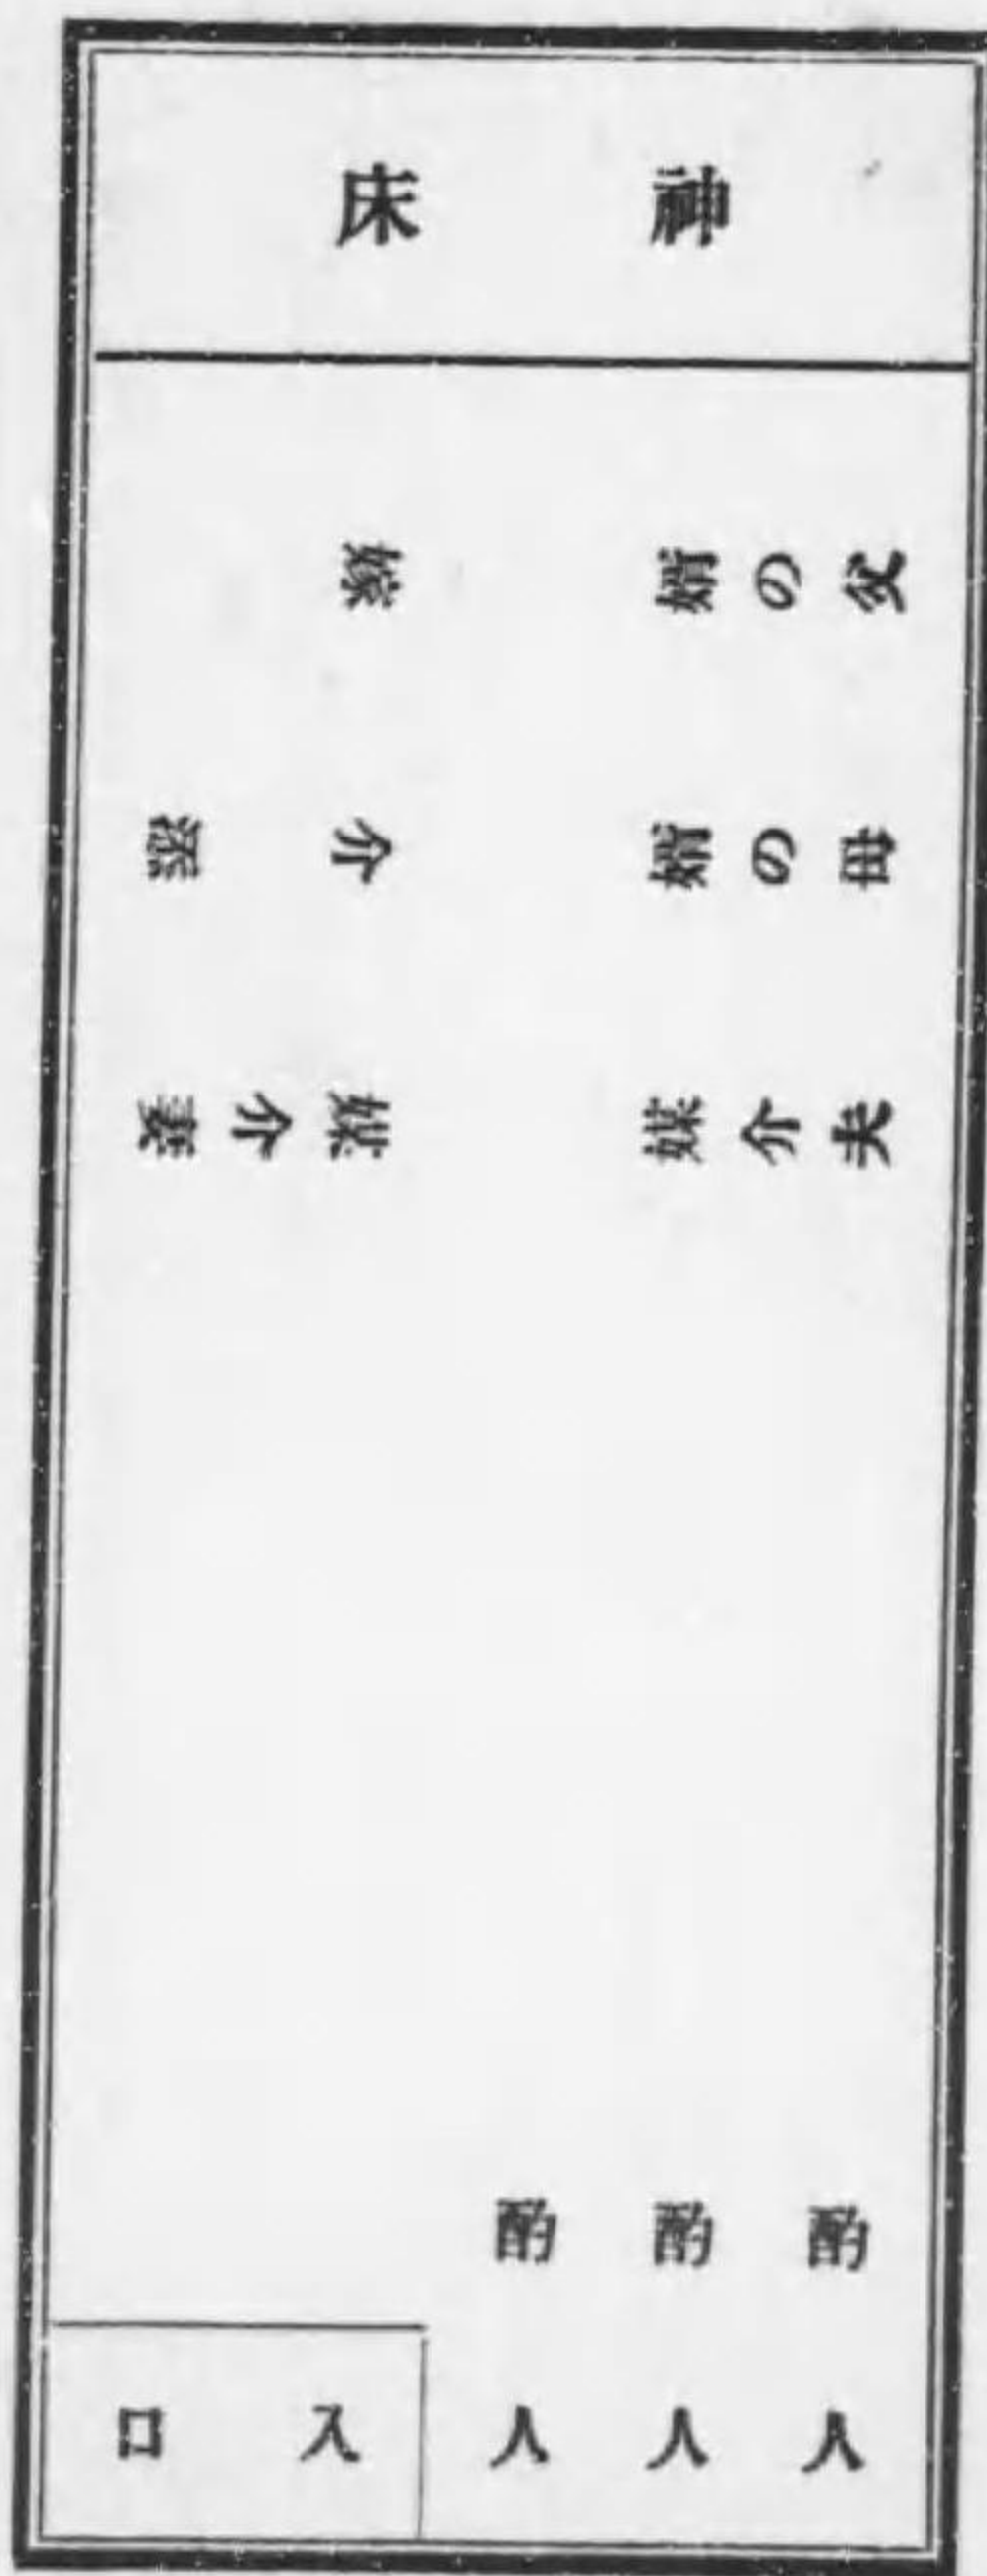 神床
婿の父
婿の母
媒介夫
嫁
介添
媒介妻
酌人
酌人
酌人
入口